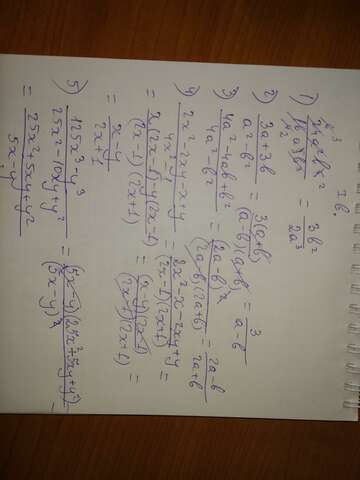 Iв.
1) = 3b² / 2a³
2) (3a+3b) / (a²-b²) = 3(a+b) / ((a-b)(a+b)) = 3 / (a-b)
3) (4a²-4ab+b²) / (4a²-b²) = (2a-b)² / ((2a-b)(2a+b)) = (2a-b) / (2a+b)
4) (2x²-2xy-x+y) / (4x²-1) = (2x²-x-2xy+y) / ((2x-1)(2x+1)) =
= (x(2x-1)-y(2x-1)) / ((2x-1)(2x+1)) = ((x-y)(2x-1)) / ((2x-1)(2x+1)) =
= (x-y) / (2x+1)
5) (125x³-y³) / (25x²-10xy+y²) = ((5x-y)(25x²+5xy+y²)) / (5x-y)² =
= (25x²+5xy+y²) / (5x-y)